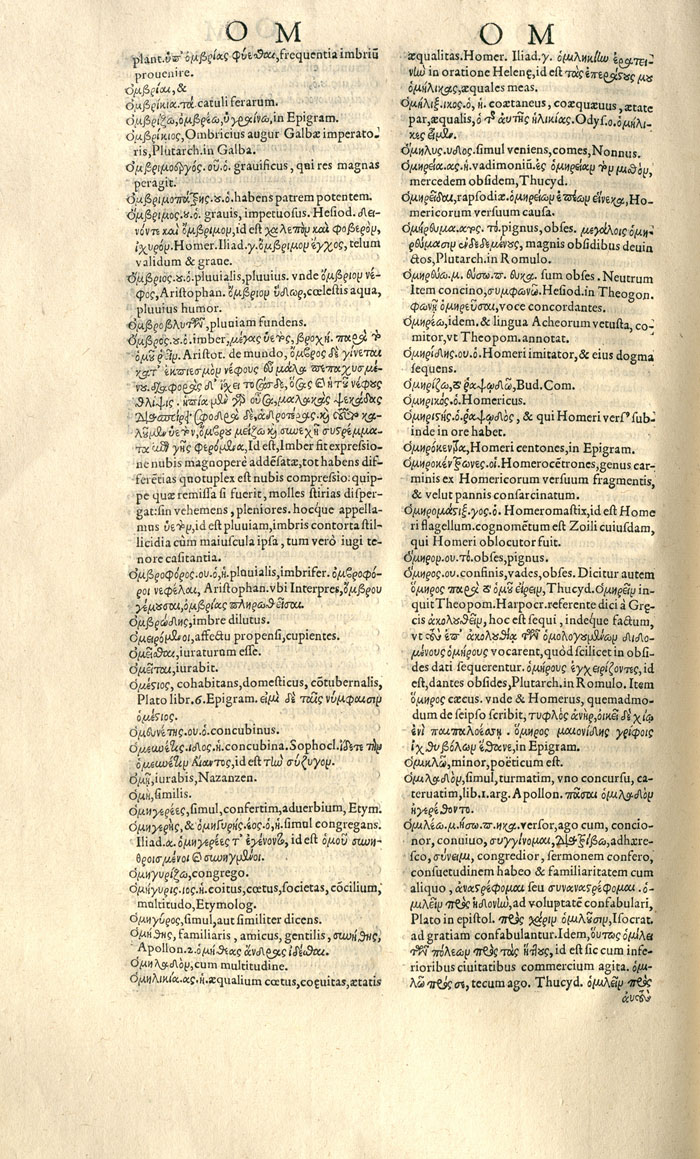 O M
plant. ὑπ' ὀμβρίας φύεσθαι, frequentia imbriũ
prouenire.
ὀμβρίαι, &
ὀμβρίκια. τὰ catuli ferarum.
ὀμβρίζω, ὀμβρέω, ὑγραίνω, in Epigram.
ὀμβρίκιος, Ombricius augur Galbæ imperato-
ris, Plutarch. in Galba.
ὀμβριμοεργός. οῦ. ὁ. grauificus, qui res magnas
peragit.
ὀμβριμοπάτρης. ου. ὁ. habens patrem potentem.
ὄμβριμος. ου. ὁ. grauis, impetuosus. Hesiod. δει-
νόν τε καὶ ὄμβριμον, id est χαλεπὸν καὶ φοβερὸν,
ἰχυρόν. Homer. Iliad. γ. ὄμβριμον ἔγχος, telum
validum & graue.
ὄμβριος. ου. ὁ. pluuialis, pluuius. vnde ὄμβριον νέ-
φος, Aristophan. ὄμβριον ὕδωρ, cœlestis aqua,
pluuius humor.
pluuiam fundens.
ὄμβρος. ου. ὁ. imber, μέγας ὑετὸς, βροχή. παρὰ τὸ
ὁμοῦ ῥεῖν. Aristot. de mundo, ὄμβρος δὲ γίνεται
κατ' ἐκπιεσμὸν νέφους εὖ μάλα πεπαχυσμέ-
νου. διαφορὰς δ' ἴχει τοσάσδε, ὅσας ἡ τοῦ νέφους
θλίψις. ἠπία μὲν γὰρ οὖσα, μαλακὰς ψεκάδας
διασπείρει σφοδρὰ δὲ, ἁδροτέρας. καὶ τοῦτο κα-
λοῦμεν ὑετὸν, ὄμβρου μείζω καὶ συνεχῆ συστρέμμα-
τα ἐπὶ γῆς φερόμενα, Id est, Imber fit expressio-
ne nubis magnoperè addẽsatæ, tot habens dif-
ferẽtias quotuplex est nubis compressio: quip-
pe quæ remissa si fuerit, molles stirias disper-
gat: sin vehemens, pleniores. hocque appella-
mus ὑετὸν, id est pluuiam, imbris contorta stil-
licidia cùm maiuscula ipsa, tum verò iugi te-
nore casitantia.
ὀμβροφόρος. ου. ὁ, ἡ. pluuialis, imbrifer. ὀμβροφό-
ροι νεφέλαι, Aristophan. vbi Interpres, ὄμβρου
γέμουσαι, ὀμβρίας πληρωθεῖσαι.
ὀμβρώδης, imbre dilutus.
ὀμειρόμενοι, affectu propensi, cupientes.
ὀμεῖσθαι, iuraturum esse.
ὀμεῖται, iurabit.
ὀμέστιος, cohabitans, domesticus, cõtubernalis,
Plato libr. 6. Epigram. εἰμὶ δὲ ταῖς νύμφαισιν
ὀμέστιος.
ὁμευνέτης. ου. ὁ. concubinus.
ὁμευνέτις. ιδος. ἡ. concubina. Sophocl. ἴδετε τὴν
ὁμευνέτιν Αἴαντος, id est τὴν σύζυγον.
ὀμῇ, iurabis, Nazanzen.
ὁμὴ, similis.
ὁμηγερέες, simul, confertim, aduerbium, Etym.
ὁμηγερὴς, & ὁμηγυρής. έος. ὁ, ἡ. simul congregans.
Iliad. α. ὁμηγερέες τ' ἐγένοντο, id est ὁμοῦ συνη-
θροισμένοι συνηγμένοι.
ὁμηγυρίζω, congrego.
ὁμήγυρις. ιος. ἡ. coitus, cœtus, societas, cõcilium,
multitudo, Etymolog.
ὁμηγύρος, simul, aut similiter dicens.
ὁμήθης, familiaris, amicus, gentilis, συνήθης,
Apollon. 2. ὁμήθεας ἄνδρας ἰδέσθαι.
ὁμηλαδὸν, cum multitudine.
ὁμηλικία. ας. ἡ. æqualium cœtus, coquitas, ætatis
O M
æqualitas. Homer. Iliad. γ. ὁμηλικίην ἐρατει-
νὴν in oratione Helenę, id est τὰς ἑταίρους μου
ὁμήλικας, æquales meas.
ὁμῆλιξ. ικος. ὁ, ἡ. coætaneus, coæquæuus, ætate
par, æqualis, ὁ τῆς αὐτῆς ἡλικίας. Odys. ο. ὁμήλι-
κες εἰμέν.
ὁμῆλυς. υδος. simul veniens, comes, Nonnus.
ὁμηρεία. ας. ἡ. vadimoniũ. ἐς ὁμηρείαν τὸν μισθὸν,
mercedem obsidem, Thucyd.
ὁμηρεῖδαι, rapsodiæ. ὁμηρείων ἐπέων εἵνεκα, Ho-
mericorum versuum causa.
ὁμήρευμα. ατος. τὸ. pignus, obses. μεγάλοις ὁμη-
ρεύμασιν ἐνδεδεμένους, magnis obsidibus deuin
ctos, Plutarch. in Romulo.
ὁμηρεύω. μ. εύσω. π. ευκα. sum obses. Neutrum
Item concino, συμφωνῶ. Hesiod. in Theogon.
φωνῇ ὁμηρεῦσαι, voce concordantes.
ὁμηρέω, idem. & lingua Acheorum vetusta, co-
mitor, vt Theopom. annotat.
ὁμηρίδης. ου. ὁ. Homeri imitator, & eius dogma
sequens.
ὁμηρίζω, ῥαψῳδῶ, Bud. Com.
ὁμηρικὸς. ὁ. Homericus.
ὁμηριστὴς. ὁ. ῥαψῳδὸς, & qui Homeri vers⁹ sub-
inde in ore habet.
ὁμηρόκεντρα, Homeri centones, in Epigram.
ὁμηροκέντρωνες. οἱ. Homerocẽtrones, genus car-
minis ex Homericorum versuum fragmentis,
& velut pannis consarcinatum.
ὁμηρομάστιξ. γος. ὁ. Homeromastix, id est Home
ri flagellum. cognomẽtum est Zoili cuiusdam,
qui Homeri oblocutor fuit.
ὅμηρον. ου. τὸ. obses, pignus.
ὅμηρος. ου. confinis, vades, obses. Dicitur autem
ὅμηρος παρὰ τὸ ὁμοῦ εἴρειν, Thucyd. Ὁμηρεῖν in-
quit Theopom. Harpocr. referente dici à Grę-
cis ἀκολουθεῖν, hoc est sequi, indéque factum,
vt τοὺς ἐπ' ἀκολουθίᾳ τῶν ὁμολογουμένων διδο-
μένους ὁμήρους vocarent, quòd scilicet in obsi-
des dati sequerentur. ὁμήρους ἐγχειρίζοντες, id
est, dantes obsides, Plutarch. in Romulo. Item
ὅμηρος cæcus. vnde & Homerus, quemadmo-
dum de seipso scribit, τυφλὸς ἀνὴρ, οἰκεῖ δὲ χίῳ
ἐνὶ παιπαλοέσσῃ. ὅμηρος μαιονίδης γρίφοις
ἰχθυβόλων ἔθανε, in Epigram.
ὁμικλῶ, minor, poëticum est.
ὁμιλαδὸν, simul, turmatim, vno concursu, ca-
teruatim, lib. 1. arg. Apollon. πᾶσαι ὁμιλαδὸν
ἠγερέθοντο.
ὁμιλέω. μ. ήσω. π. ηκα. versor, ago cum, concio-
nor, conuiuo, συγγίνομαι, διατρίβω, adhære-
sco, σύνειμι, congredior, sermonem confero,
consuetudinem habeo & familiaritatem cum
aliquo, ἀναστρέφομαι seu συναναστρέφομαι. ὁ-
μιλεῖν πρὸς ἡδονὴν, ad voluptatẽ confabulari,
Plato in epistol. πρὸς χάριν ὁμιλοῦσιν, Isocrat.
ad gratiam confabulantur. Idem, οὕτως ὁμιλεῖ
τῶν πόλεων πρὸς τὰς ἥττους, id est sic cum infe-
rioribus ciuitatibus commercium agita. ὁμι-
λῶ πρός σε, tecum ago. Thucyd. ὁμιλεῖν πρὸς
αὐτοὺς